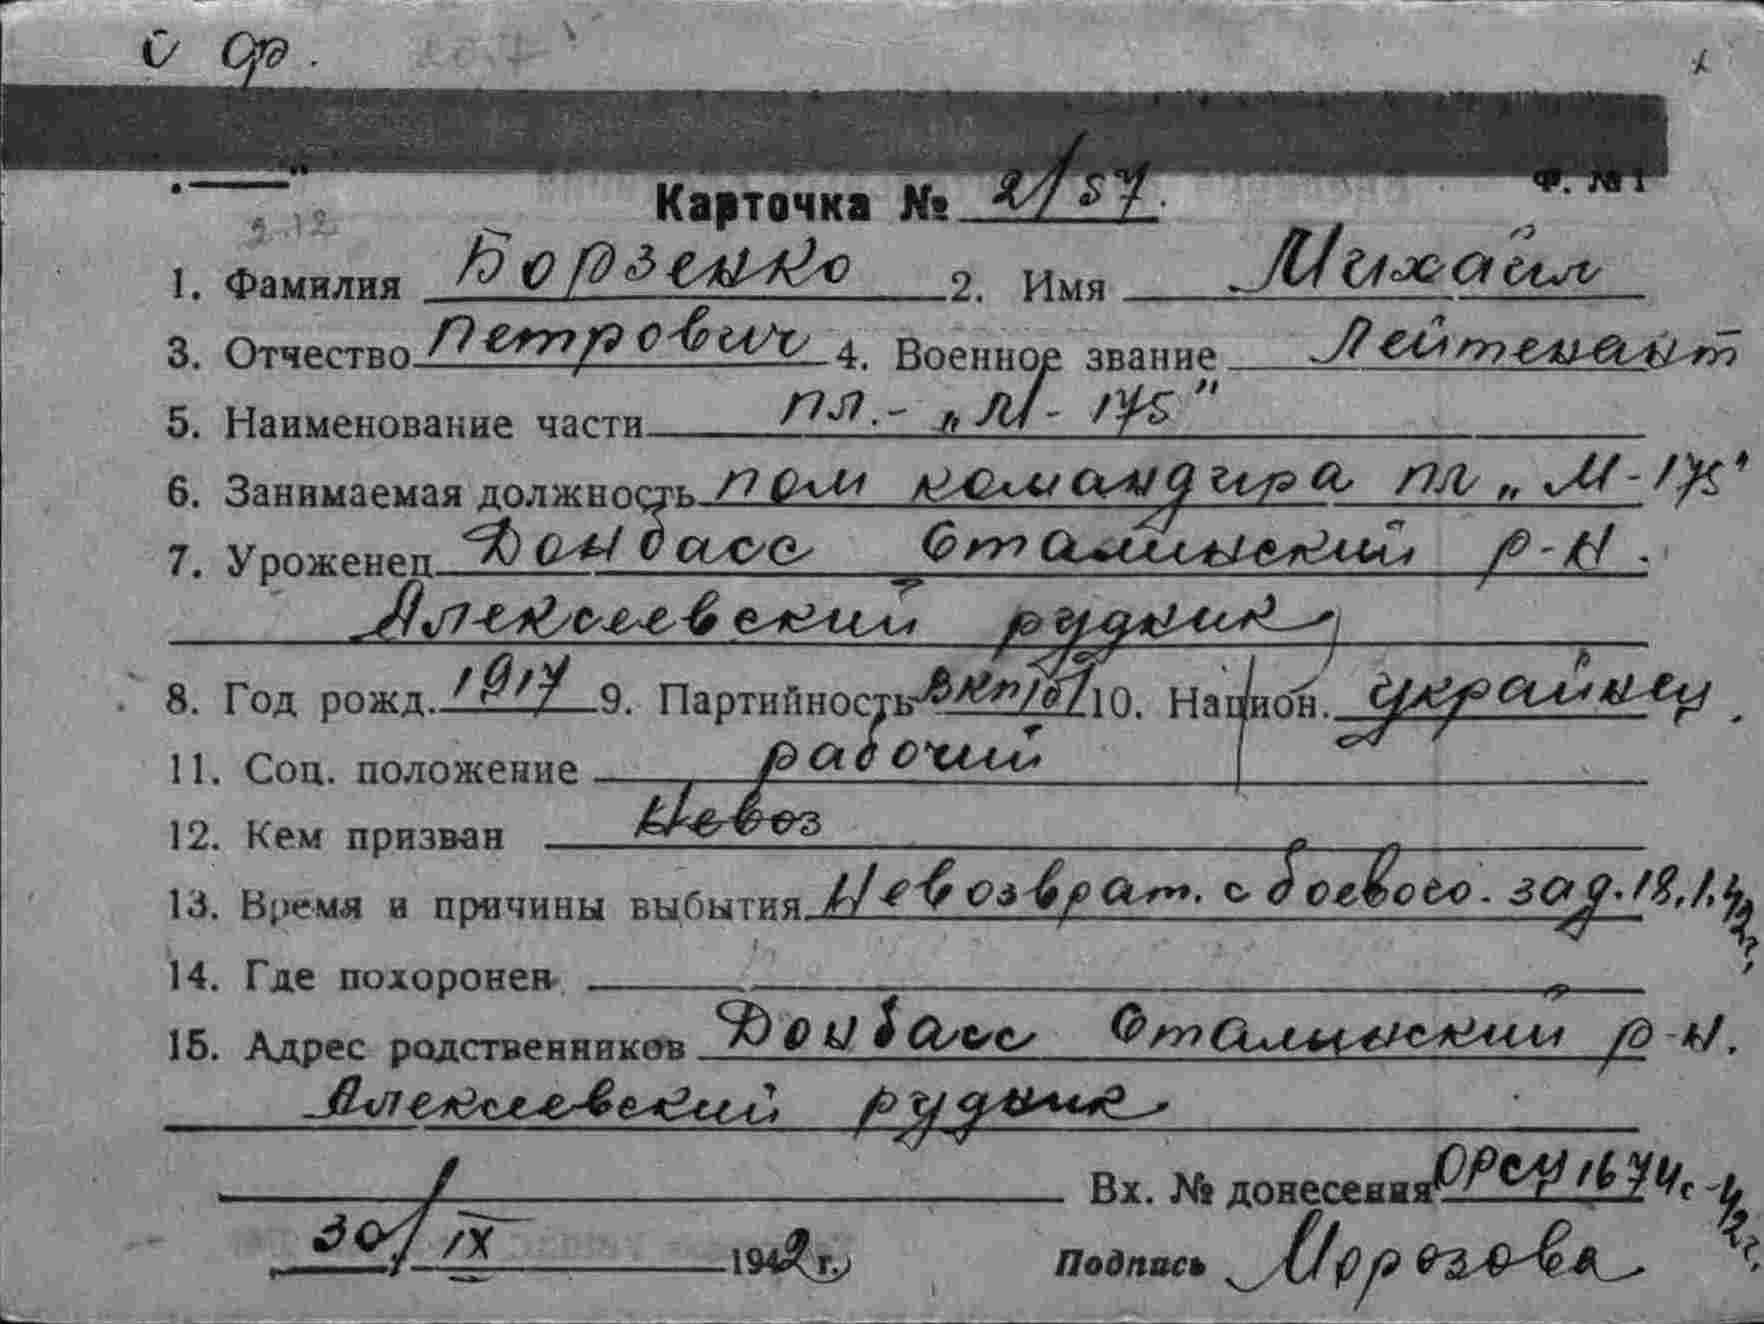 Сф.
Ф. № 1
Карточка № 2/57.
2.12
1. Фамилия Борзенко 2. Имя Михаил
3. Отчество Петрович 4. Военное звание Лейтенант
5. Наименование части пл. - „М - 175"
6. Занимаемая должность пом командира пл „М - 175"
7. Уроженец Донбасс Сталинский р-н.
Алексеевский рудник
8. Год рожд. 1917 9. Партийность ВКП/б/ 10. Национ. украинец.
11. Соц. положение рабочий
12. Кем призван Невоз
13. Время и причины выбытия Невозврат. с боевого. зад. 18.1.42г.
14. Где похоронен
15. Адрес родственников Донбасс Сталинский р-н.
Алексеевский рудник
Вх. № донесения 1674с-42г.
30/IX 1942 г. Подпись Морозова